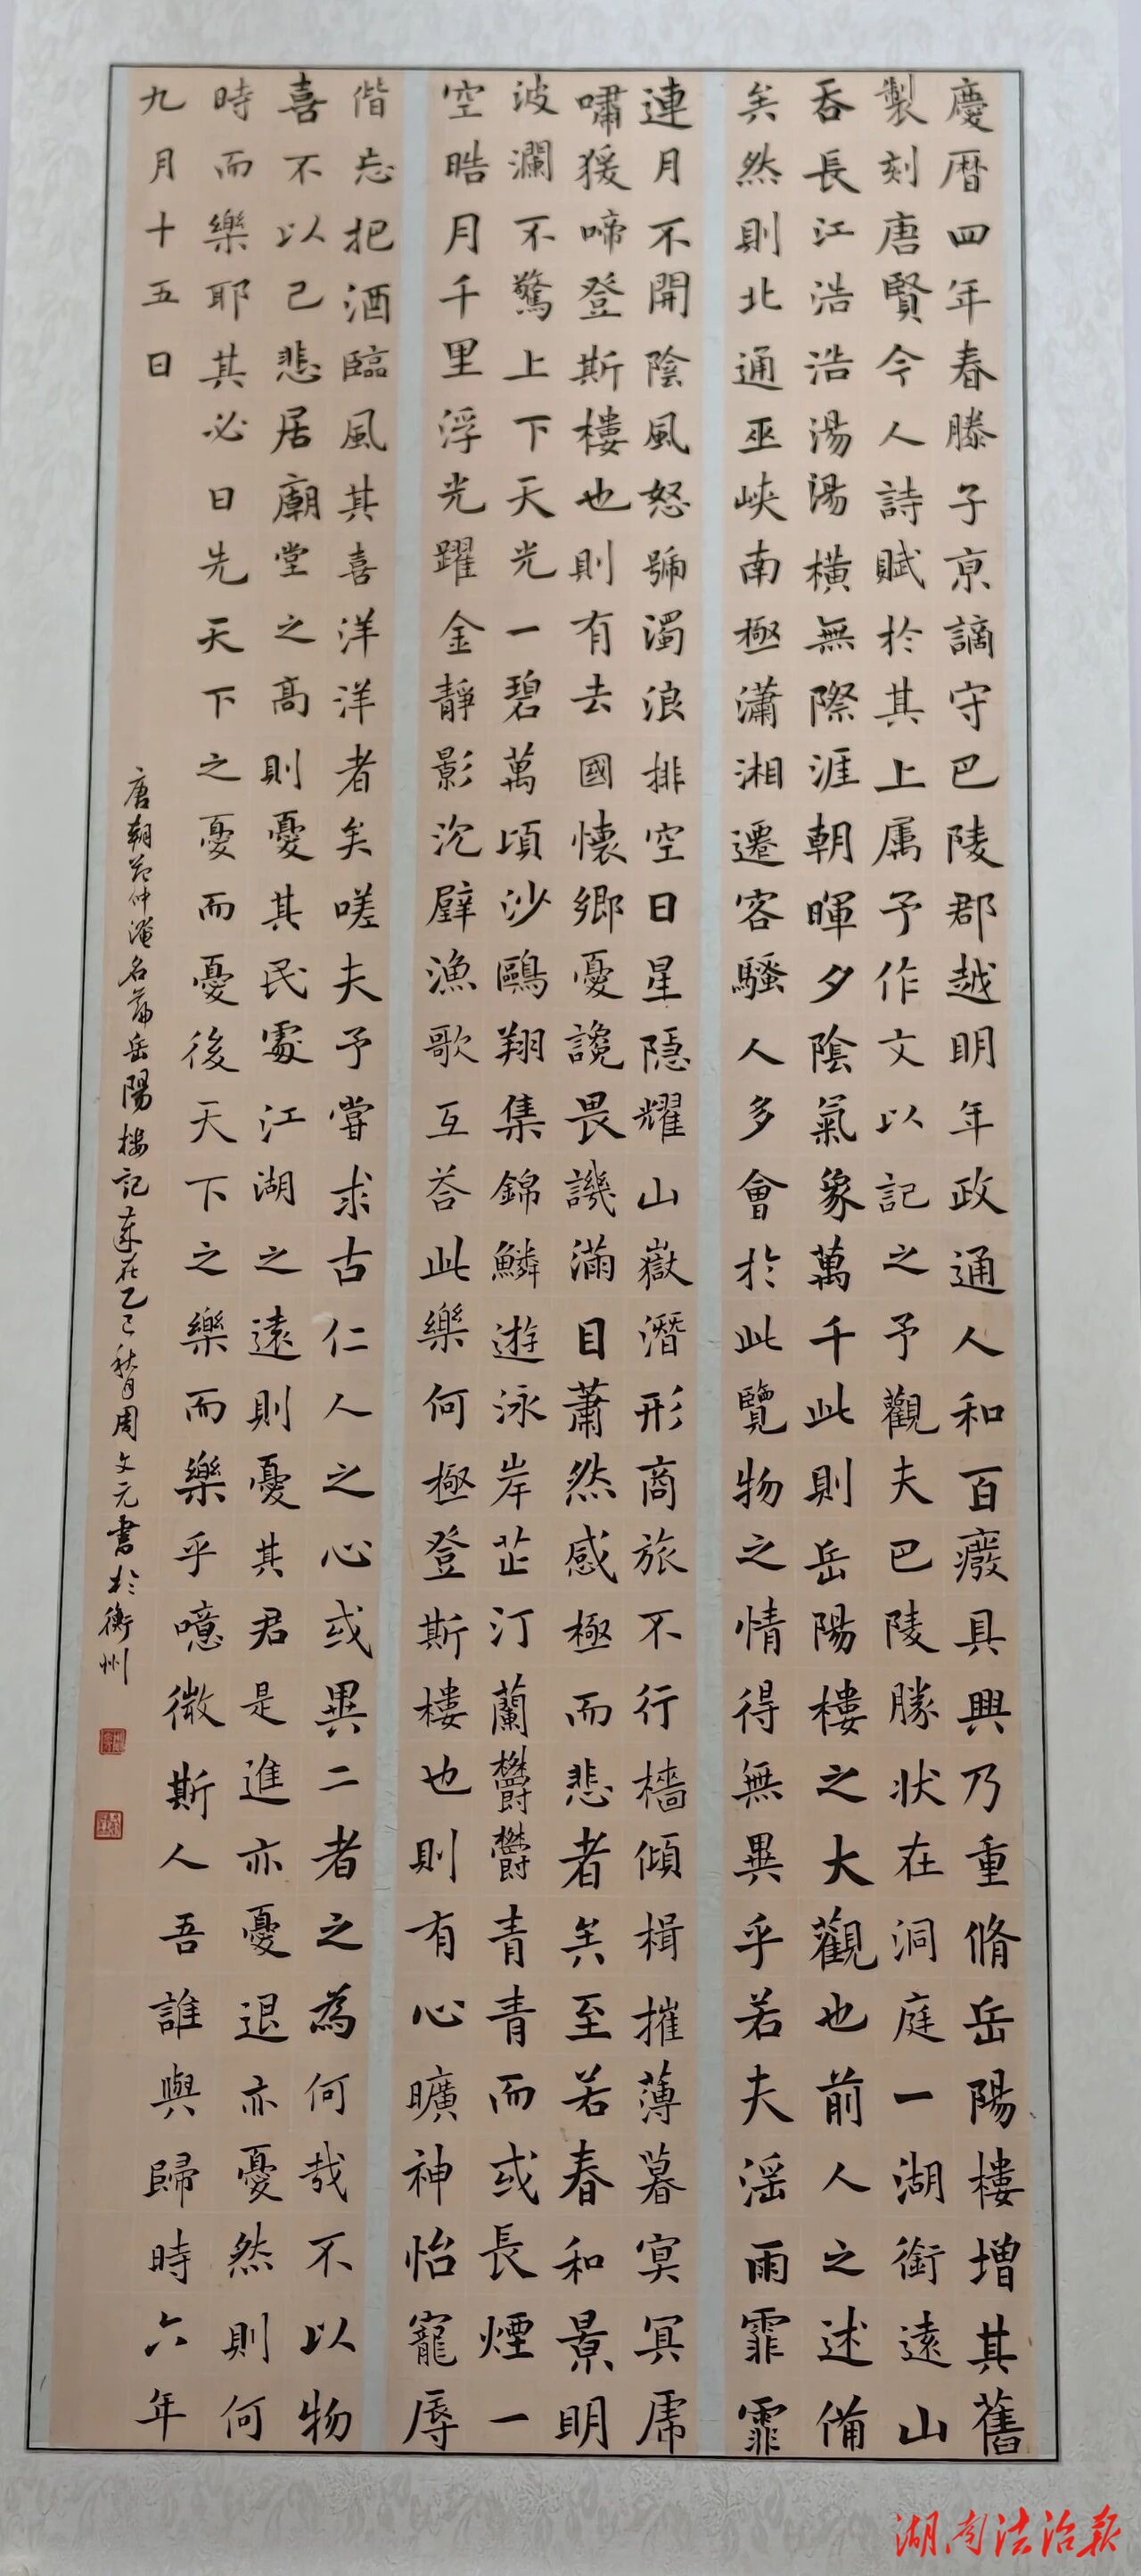 慶暦四年春滕子京謫守巴陵郡越明年政通人和百癈具興乃重脩岳陽樓增其舊
製刻唐賢今人詩賦於其上属予作文以記之予觀夫巴陵勝狀在洞庭一湖銜遠山
吞長江浩浩湯湯横無際涯朝暉夕陰氣象萬千此則岳陽樓之大觀也前人之述備
矣然則北通巫峽南極瀟湘遷客騷人多會於此覽物之情得無異乎若夫淫雨霏霏
連月不開陰風怒號濁浪排空日星隱耀山嶽潛形商旅不行檣傾楫摧薄暮冥冥虎
嘯猨啼登斯樓也則有去國懷鄉憂讒畏譏滿目蕭然感極而悲者矣至若春和景明
波瀾不驚上下天光一碧萬頃沙鷗翔集錦鱗遊泳岸芷汀蘭欝欝青青而或長煙一
空晧月千里浮光躍金靜影沉璧漁歌互荅此樂何極登斯樓也則有心曠神怡寵辱
偕忘把酒臨風其喜洋洋者矣嗟夫予嘗求古仁人之心或異二者之為何哉不以物
喜不以己悲居廟堂之高則憂其民處江湖之遠則憂其君是進亦憂退亦憂然則何
時而樂耶其必曰先天下之憂而憂後天下之樂而樂乎噫微斯人吾誰與歸時六年
九月十五日
唐朝范仲淹名篇岳陽樓記歲在乙巳秋月周文元書於衡州
湖南法治报